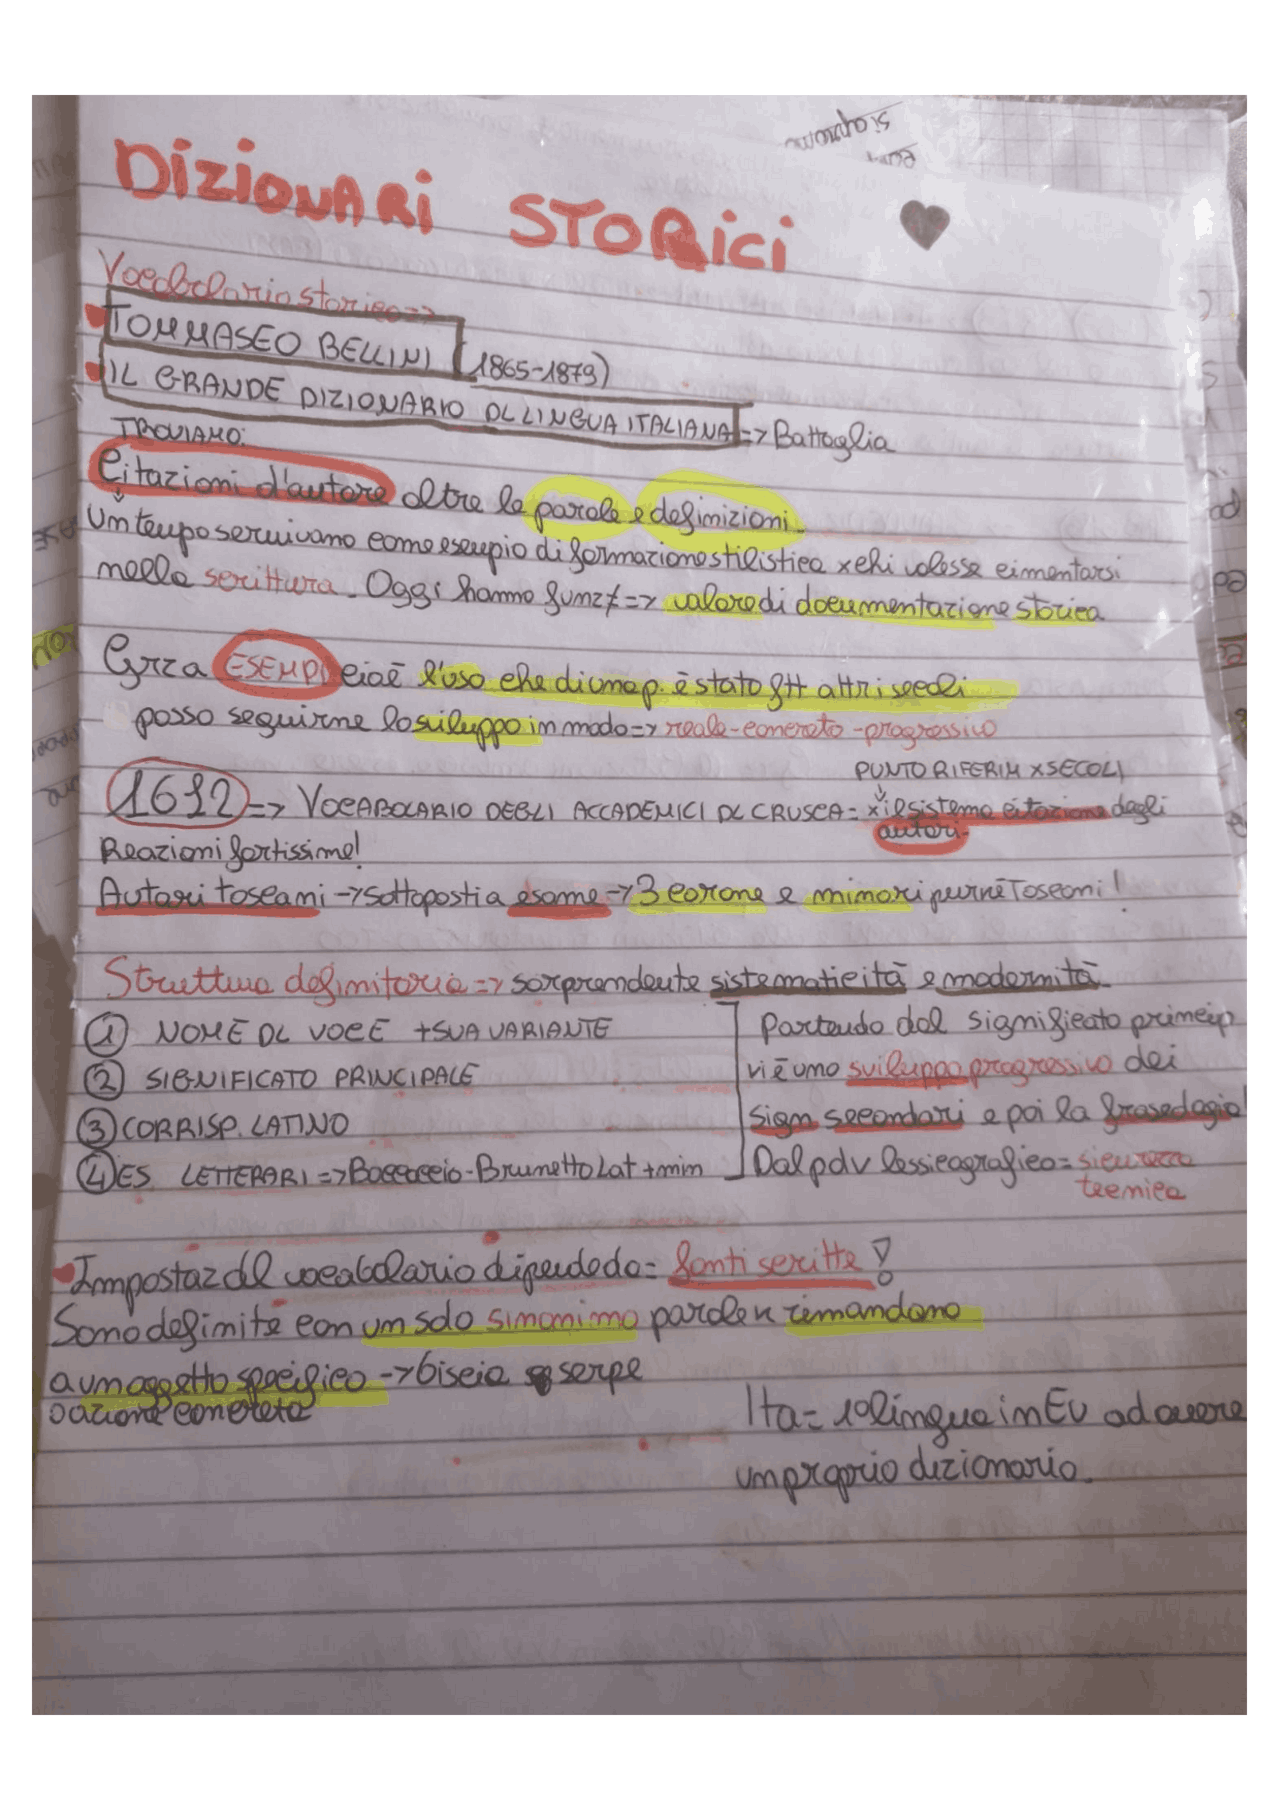 DIZIONARI STORICI
Vocabolario storico =>
TOMMASEO BELLINI (1865-1879)
IL GRANDE DIZIONARIO DL LINGUA ITALIANA => Battaglia
TROVIAMO:
Citazioni d'autore oltre le parole e definizioni.
Un tempo servivano come esempio di formazione stilistica x chi volesse cimentarsi
nella scrittura. Oggi hanno funz ≠ => valore di documentazione storica
Grza ESEMPI cioè l'uso che di una p. è stato ftt attri secoli
posso seguirne lo sviluppo in modo => reale-concreto-progressivo
PUNTO RIFERIM X SECOLI
1612 => VOCABOLARIO DEGLI ACCADEMICI DL CRUSCA = x il sistema citazione degli
autori.
Reazioni fortissime!
Autori toscani -> sottoposti a esame -> 3 corone e minori purnè Toscani!
Struttura definitoria => sorprendente sistematicità e modernità
1 NOME DL VOCE + SUA VARIANTE
2 SIGNIFICATO PRINCIPALE
3 CORRISP. LATINO
4 ES. LETTERARI => Boccaccio-Brunetto Lat + min
Partendo dal significato princip
vi è uno sviluppo progressivo dei
sign secondari e poi la fraseologia!
Dal pdv lessicografico = sicurezza
tecnica
Impostaz dl vocabolario dipende da = fonti scritte!
Sono definite con un solo sinonimo parole k rimandano
a un oggetto specifico -> biscia serpe
o azione concreta
Ita = 1° lingua in EU ad avere
un proprio dizionario.